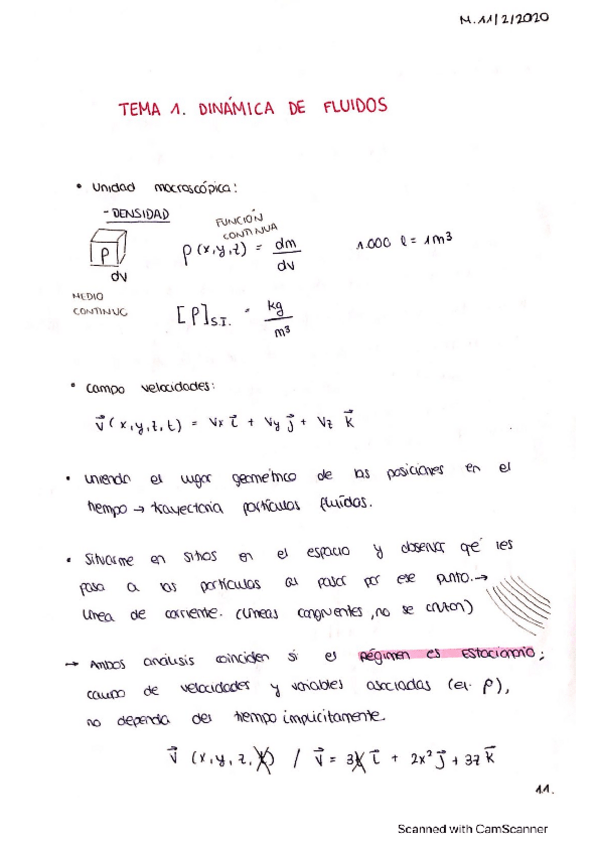 M. 11/2/2020
TEMA 1. DINÁMICA DE FLUIDOS
• Unidad macroscópica:
- DENSIDAD
FUNCIÓN
CONTINUA
ρ
dv
ρ(x,y,z) = dm/dv
1.000 l = 1m³
MEDIO
CONTINUO
[ρ]S.I. = kg/m³
• Campo velocidades:
v⃗(x,y,z,t) = Vx i⃗ + Vy j⃗ + Vz k⃗
• uniendo el lugar geométrico de las posiciones en el
tiempo → trayectoria partículas fluídas.
• Situarme en sitios en el espacio y observar qé les
pasa a las partículas al pasar por ese punto. →
línea de corriente. (líneas congruentes, no se cruzan)
→ Ambos análisis coinciden si el régimen es estacionario;
campo de velocidades y variables asociadas (ej. ρ),
no dependa del tiempo implícitamente.
v⃗ (x,y,z,t) / v⃗ = 3t i⃗ + 2x² j⃗ + 3z k⃗
11.
Scanned with CamScanner